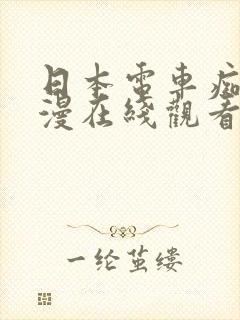 日本電車痴
漫在綫觀看
一纶茧缕